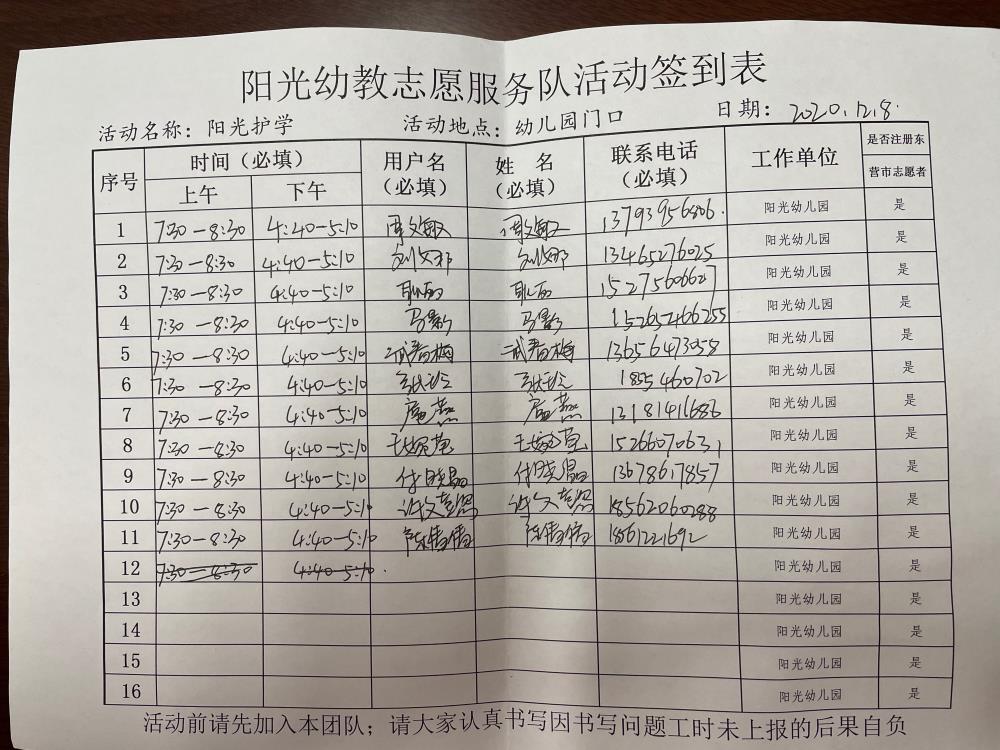 阳光幼教志愿服务队活动签到表
活动名称：阳光护学 活动地点：幼儿园门口 日期：2020.12.8.
序号 时间（必填） 用户名（必填） 姓名（必填） 联系电话（必填） 工作单位 是否注册东营市志愿者
上午 下午
1 7:30—8:30 4:40—5:10 阳光幼儿园 是
2 7:30—8:30 4:40—5:10 13465276025 阳光幼儿园 是
3 7:30—8:30 4:40—5:10 耿丽 耿丽 15275606627 阳光幼儿园 是
4 7:30—8:30 4:40—5:10 马影 马影 15265466255 阳光幼儿园 是
5 7:30—8:30 4:40—5:10 武春梅 武春梅 13656473058 阳光幼儿园 是
6 7:30—8:30 4:40—5:10 阳光幼儿园 是
7 7:30—8:30 4:40—5:10 13181411686 阳光幼儿园 是
8 7:30—8:30 4:40—5:10 15266070631 阳光幼儿园 是
9 7:30—8:30 4:40—5:10 付晓晶 付晓晶 13678617857 阳光幼儿园 是
10 7:30—8:30 4:40—5:10 18562060288 阳光幼儿园 是
11 7:30—8:30 4:40—5:10 陈倩倩 陈倩倩 18661221692 阳光幼儿园 是
12 7:30—8:30 4:40—5:10. 阳光幼儿园 是
13 阳光幼儿园 是
14 阳光幼儿园 是
15 阳光幼儿园 是
16 阳光幼儿园 是
活动前请先加入本团队；请大家认真书写因书写问题工时未上报的后果自负